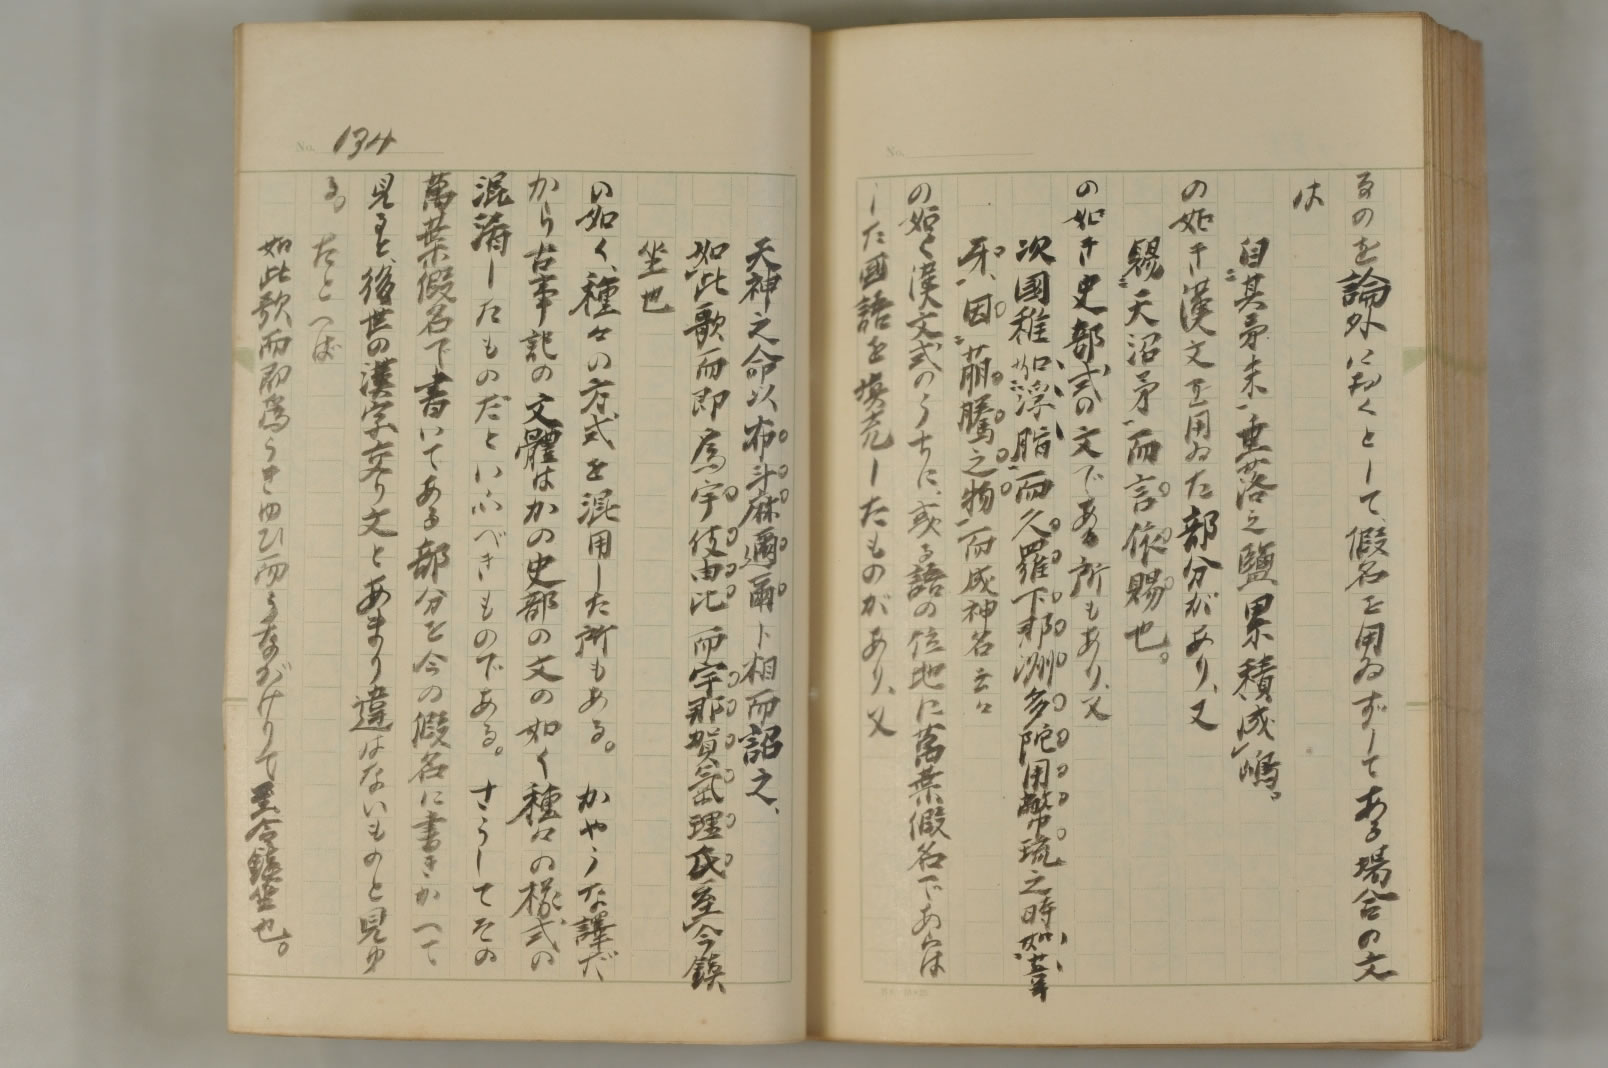 るのを論外におくとして、假名を用ゐずしてある場合の文
は
自其矛末垂落之鹽累積成嶋。
の如き漢文を用ゐた部分があり、又
賜天沼矛而言依賜也。
の如き史部式の文である所もあり、又
次國稚如浮脂而久羅下那洲多陀用幣琉之時如葦
牙、因萠騰之物而成神名云々
の如く漢文式のうちに、或る語の位地に萬葉假名であらは
した國語を塡充したものがあり、又
No.
No. 134
天神之命以布斗麻邇爾卜相而詔之、
如此歌而即爲宇伎由比而宇那賀氣理弖至今鎭
坐也
い如く、種々の方式を混用した所もある。かやうな譯だ
から古事記の文體はかの史部の文の如く種々の樣式の
混淆したものだといふべきものである。さうしてその
萬葉假名で書いてある部分を今の假名に書きかへて
見ると、後世の漢字交り文とあまり違はないものと見ゆ
る。たとへば
如此歌而即爲うきゆひ而うながけりて至今鎭坐也。